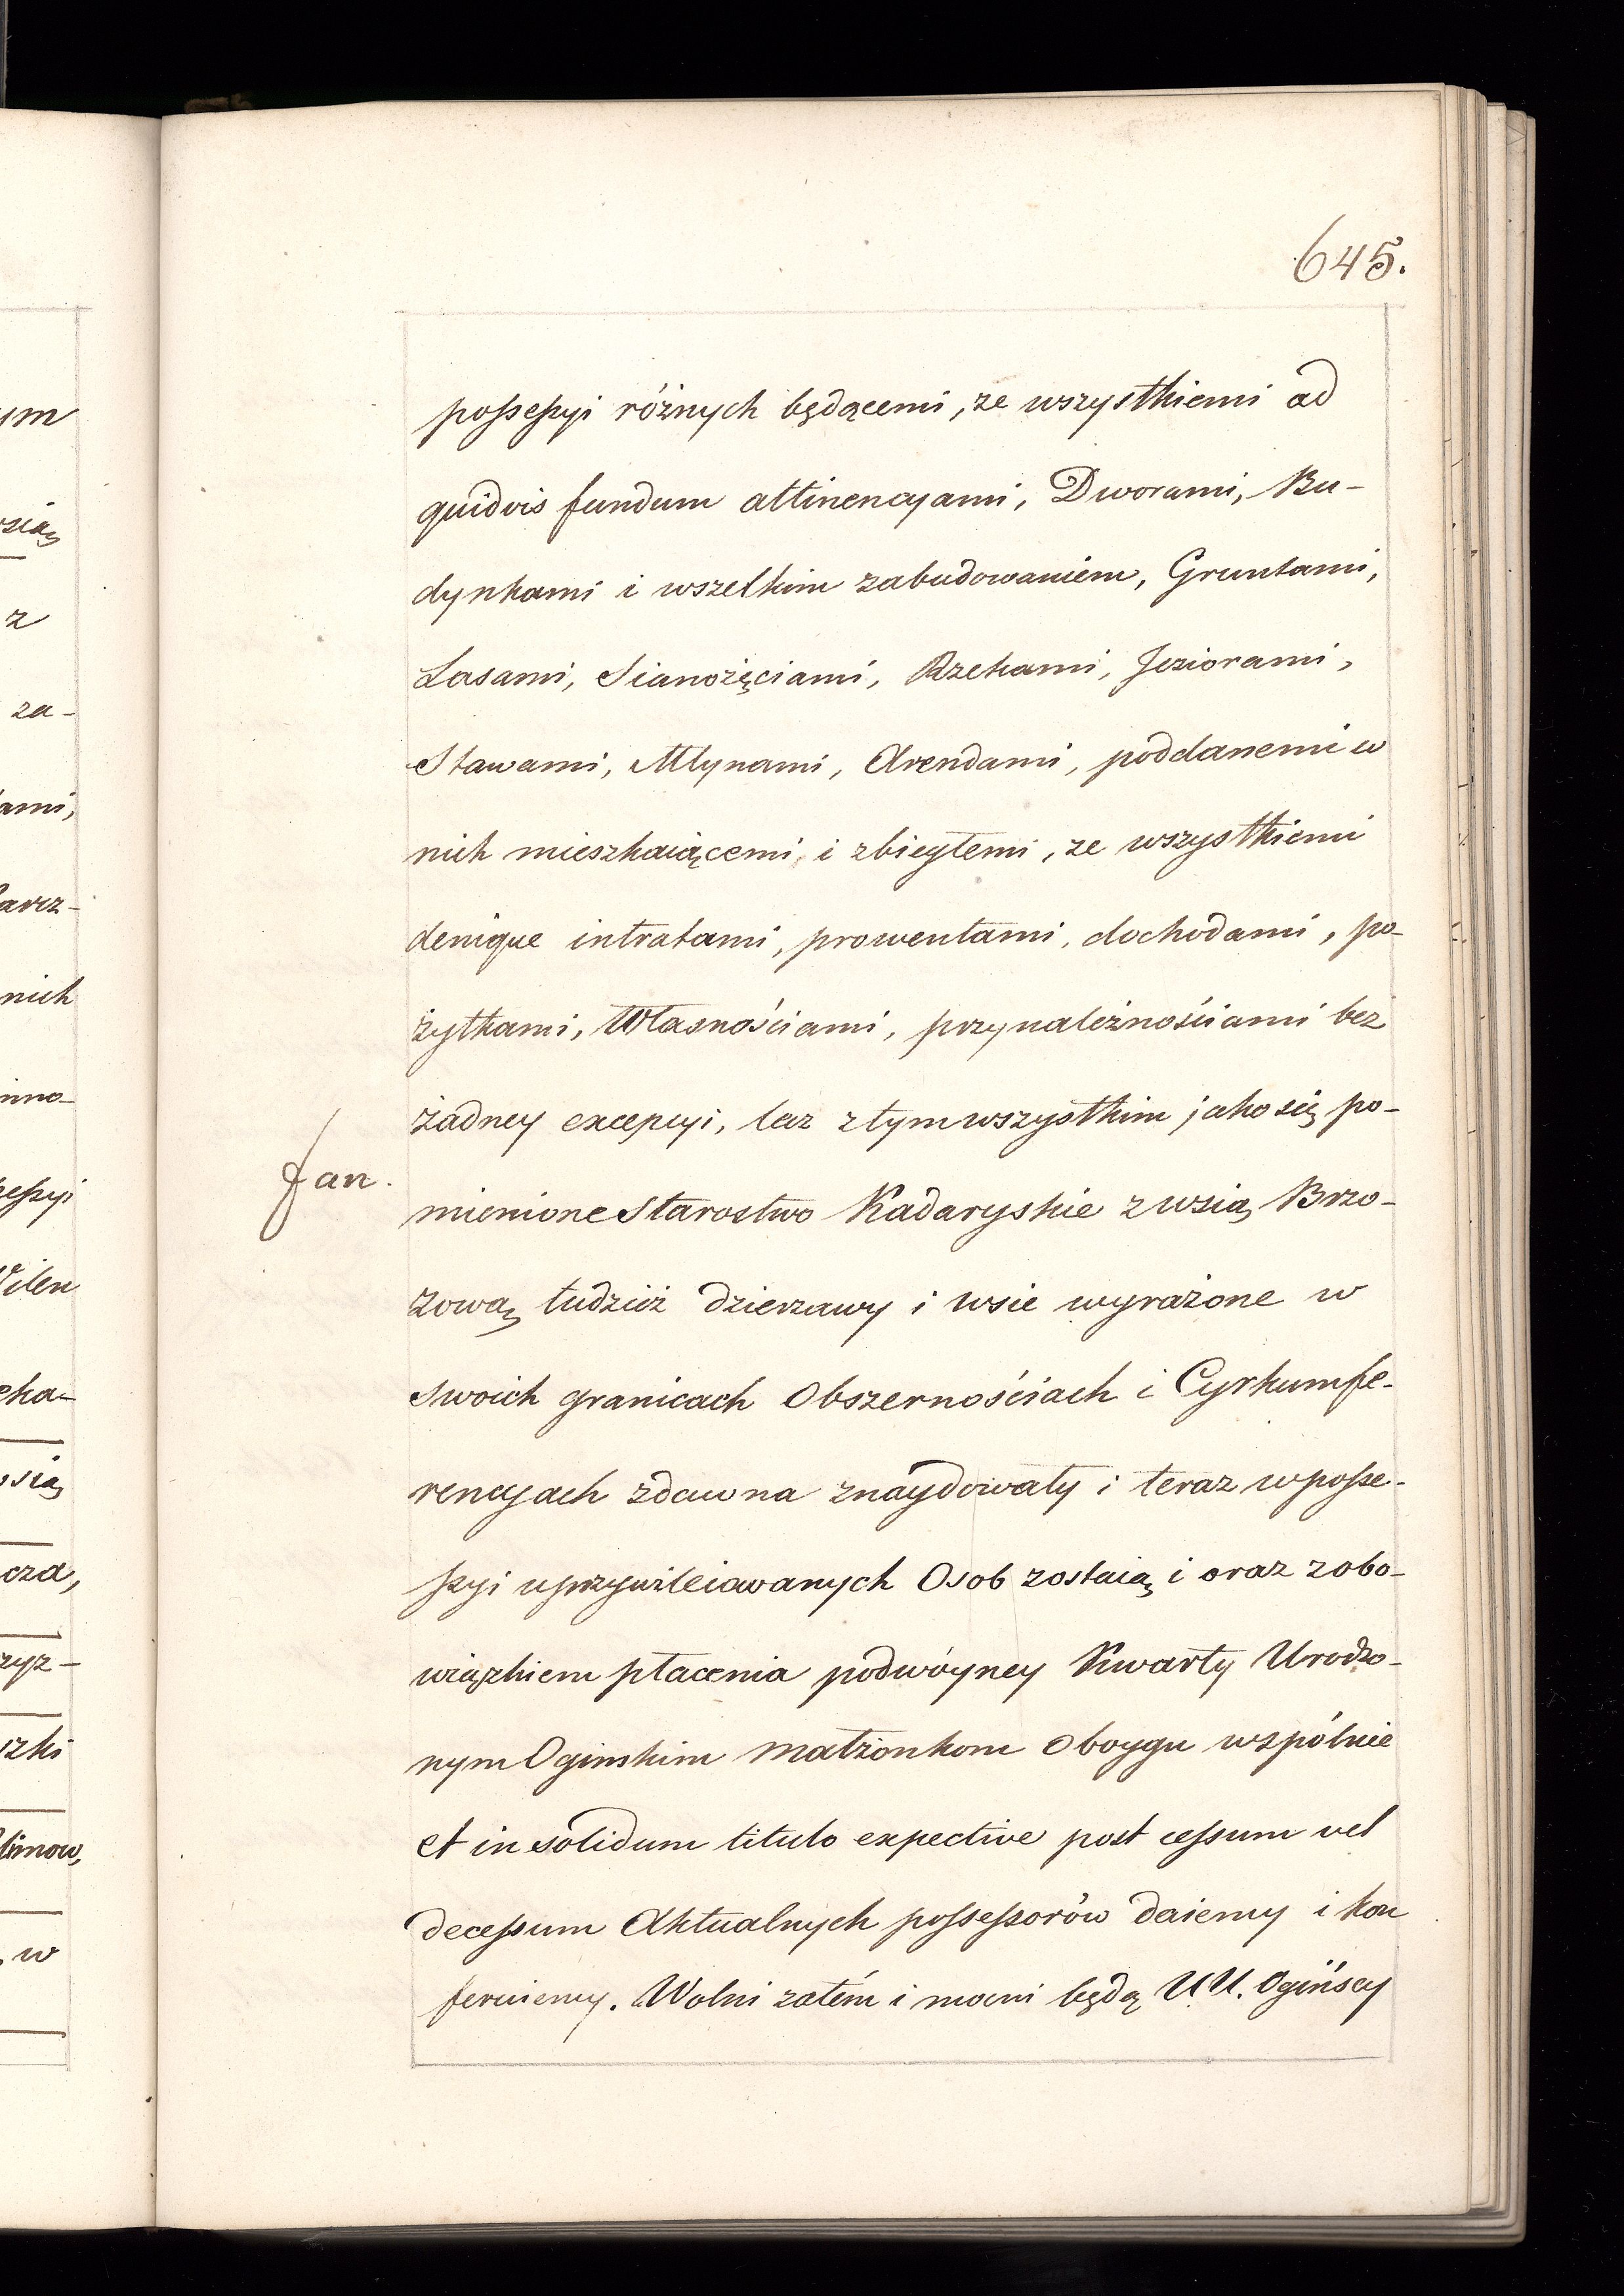 645.
possessyi różnych będącemi, ze wszystkiemi ad
quidvis fundum attinencyami, Dworami, Bu-
dynkami i wszelkim zabudowaniem, Gruntami,
Lasami, Sianożęciami, Rzekami, Jeziorami,
Stawami, Młynami, Arendami, poddanemi w
nich mieszkaiącemi, i zbiegłemi, ze wszystkiemi
denique intratami, prowentami, dochodami, po-
żytkami, Własnościami, przynależnościami bez
żadney excepcyi, lecz z tym wszystkim jako się po-
Jan.
mienione Starostwo Kadaryskie z wsią Brzo-
zową tudzież dzierzawy i wsie wyrażone w
swoich granicach Obszernościach i Cyrkumfe-
rencyach zdawna znaydowały i teraz w posse-
ssyi uprzywileiowanych Osob zostaią i oraz z obo-
wiązkiem płacenia podwóyney Kwarty Urodzo-
nym Oginskim małżonkom oboygu wspólnie
et in solidum titulo expective post cessum vel
decessum Aktualnych possessorów daiemy i kon
feruiemy. Wolni zatém i mocni będą UU. Ogińscy
ym
wsią
z
za-
ami,
arcz-
nich
inno-
sessyi
Wilen
eka-
wsią
cza,
zyz-
szki
limow,
, w